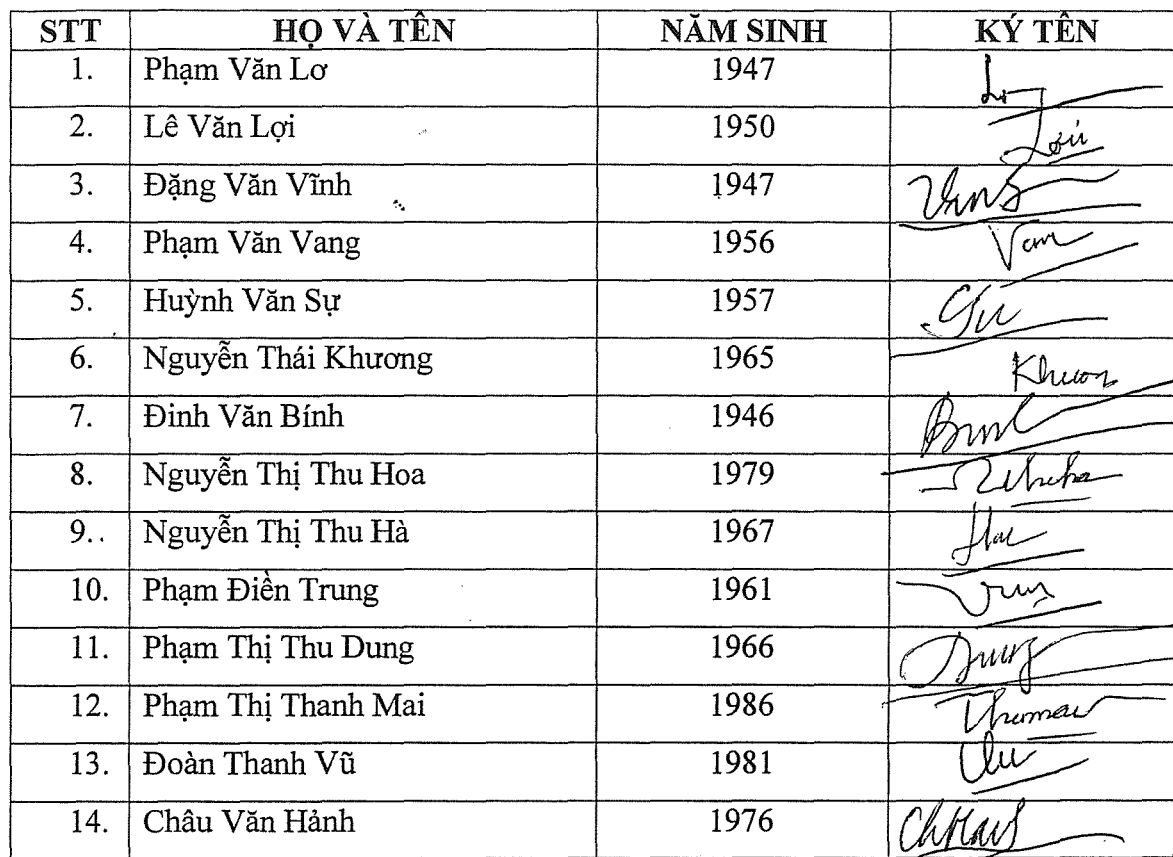 STT HỌ VÀ TÊN NĂM SINH KÝ TÊN
1. Phạm Văn Lơ 1947
2. Lê Văn Lợi 1950
3. Đặng Văn Vĩnh 1947
4. Phạm Văn Vang 1956
5. Huỳnh Văn Sự 1957
6. Nguyễn Thái Khương 1965
7. Đinh Văn Bính 1946
8. Nguyễn Thị Thu Hoa 1979
9.. Nguyễn Thị Thu Hà 1967
10. Phạm Điền Trung 1961
11. Phạm Thị Thu Dung 1966
12. Phạm Thị Thanh Mai 1986
13. Đoàn Thanh Vũ 1981
14. Châu Văn Hảnh 1976